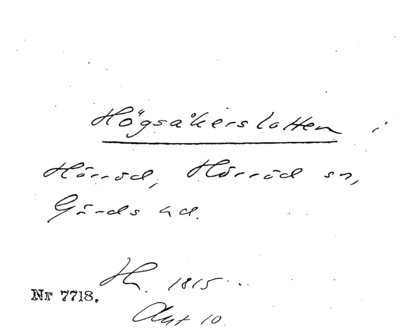 Högsåkerslotten i
Hörröd, Hörröd sn,
Gärds hd.
H. 1815
Nr 7718.
Akt 10.